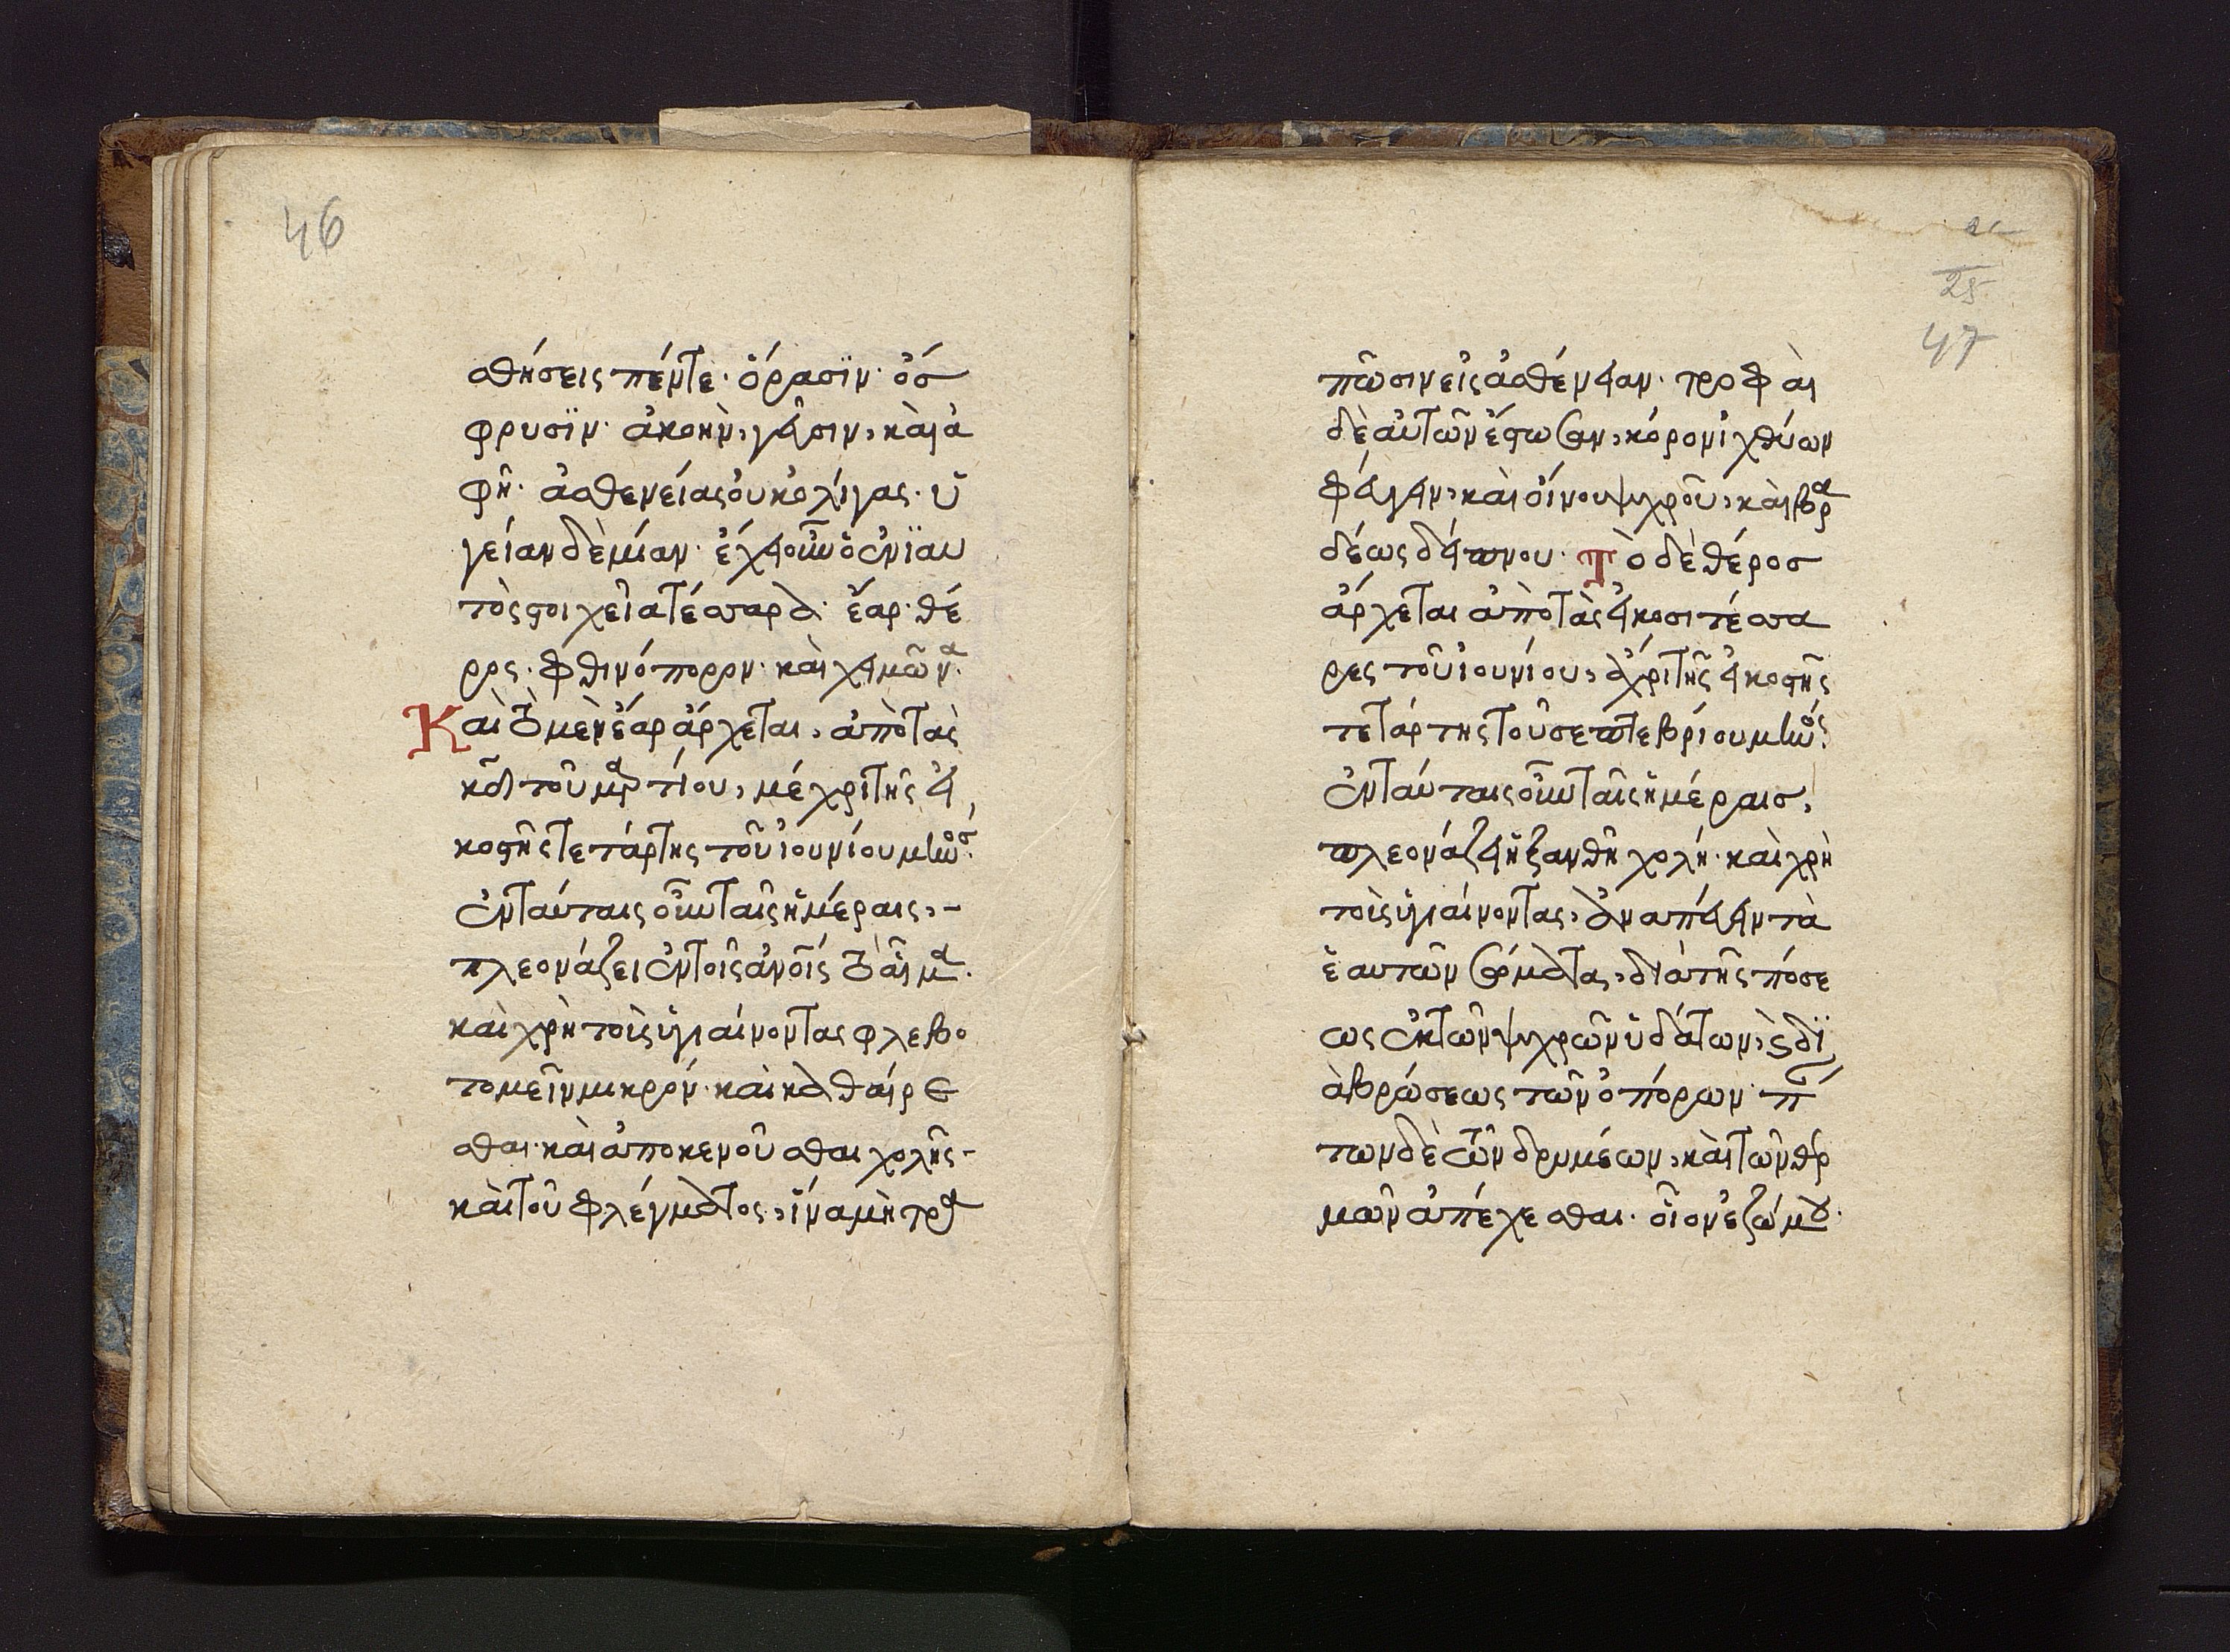 46
σθήσεις πέντε· ὅρασϊν· ὄσ
φρυσϊν· ἀκοὴν, γεῦσιν, καὶ ἁ
φῆ· ἀσθενείας οὐκ ὀλίγας· ὑ
γείαν δὲ μίαν· ἔχει οὖν ὁ ἐνϊαυ
τὸς στοιχεῖα τέσσαρα· ἔαρ· θέ
ρος· φθινόπορον· καὶ χειμῶνα·
Καὶ τὸ μὲν ἔαρ ἄρχεται, ἀπὸ τὰς
κδ τοῦ μαρτίου, μέχρι τῆς εἰ
κοστῆς τετάρτης τοῦ ἰουνίου μηνός·
ἐν ταύταις οὖν ταῖς ἡμέραις,-
πλεονάζει ἐν τοῖς ἀνοῖς τὸ αἷμα·
καὶ χρὴ τοὺς ὑγιαίνοντας φλεβο
τομεῖν μικρόν· καὶ καθαίρε
σθαι· καὶ ἀποκενοῦσθαι χολῆς-
καὶ τοῦ φλέγματος, ἵνα μὴ τρα
25
47
πῶσιν εἰς ἀσθένειαν· τροφαὶ
δὲ αὐτῶν ἔστωσαν, κόρον ἰχθύων
φάγειν, καὶ οἴνου ψυχροῦ, καὶ βρα
δέως δείπνου· Τὸ δὲ θέρος
ἄρχεται ἀπὸ τὰς εἴκοσι τέσσα
ρες τοῦ ἰουνίου, ἄχρι τῆς εἰκοστῆς
τετάρτης τοῦ σεπτεβρίου μηνός·
ἐν ταύταις οὖν ταῖς ἡμέραις,
πλεονάζει ἡ ξανθὴ χολή· καὶ χρὴ
τοὺς ὑγιαίνοντας, ἀναπαύειν τὰ
ἑαυτῶν σώματα, διὰ τῆς πόσε
ως ἐκ τῶν ψυχρῶν ὑδάτων, καὶ δϊ
ὰ βρώσεως τῶν ὀπόρων· πάν
των δὲ τῶν δρυμέων, καὶ τῶν θερ
μῶν ἀπέχεσθαι· οἷον εζώμου·